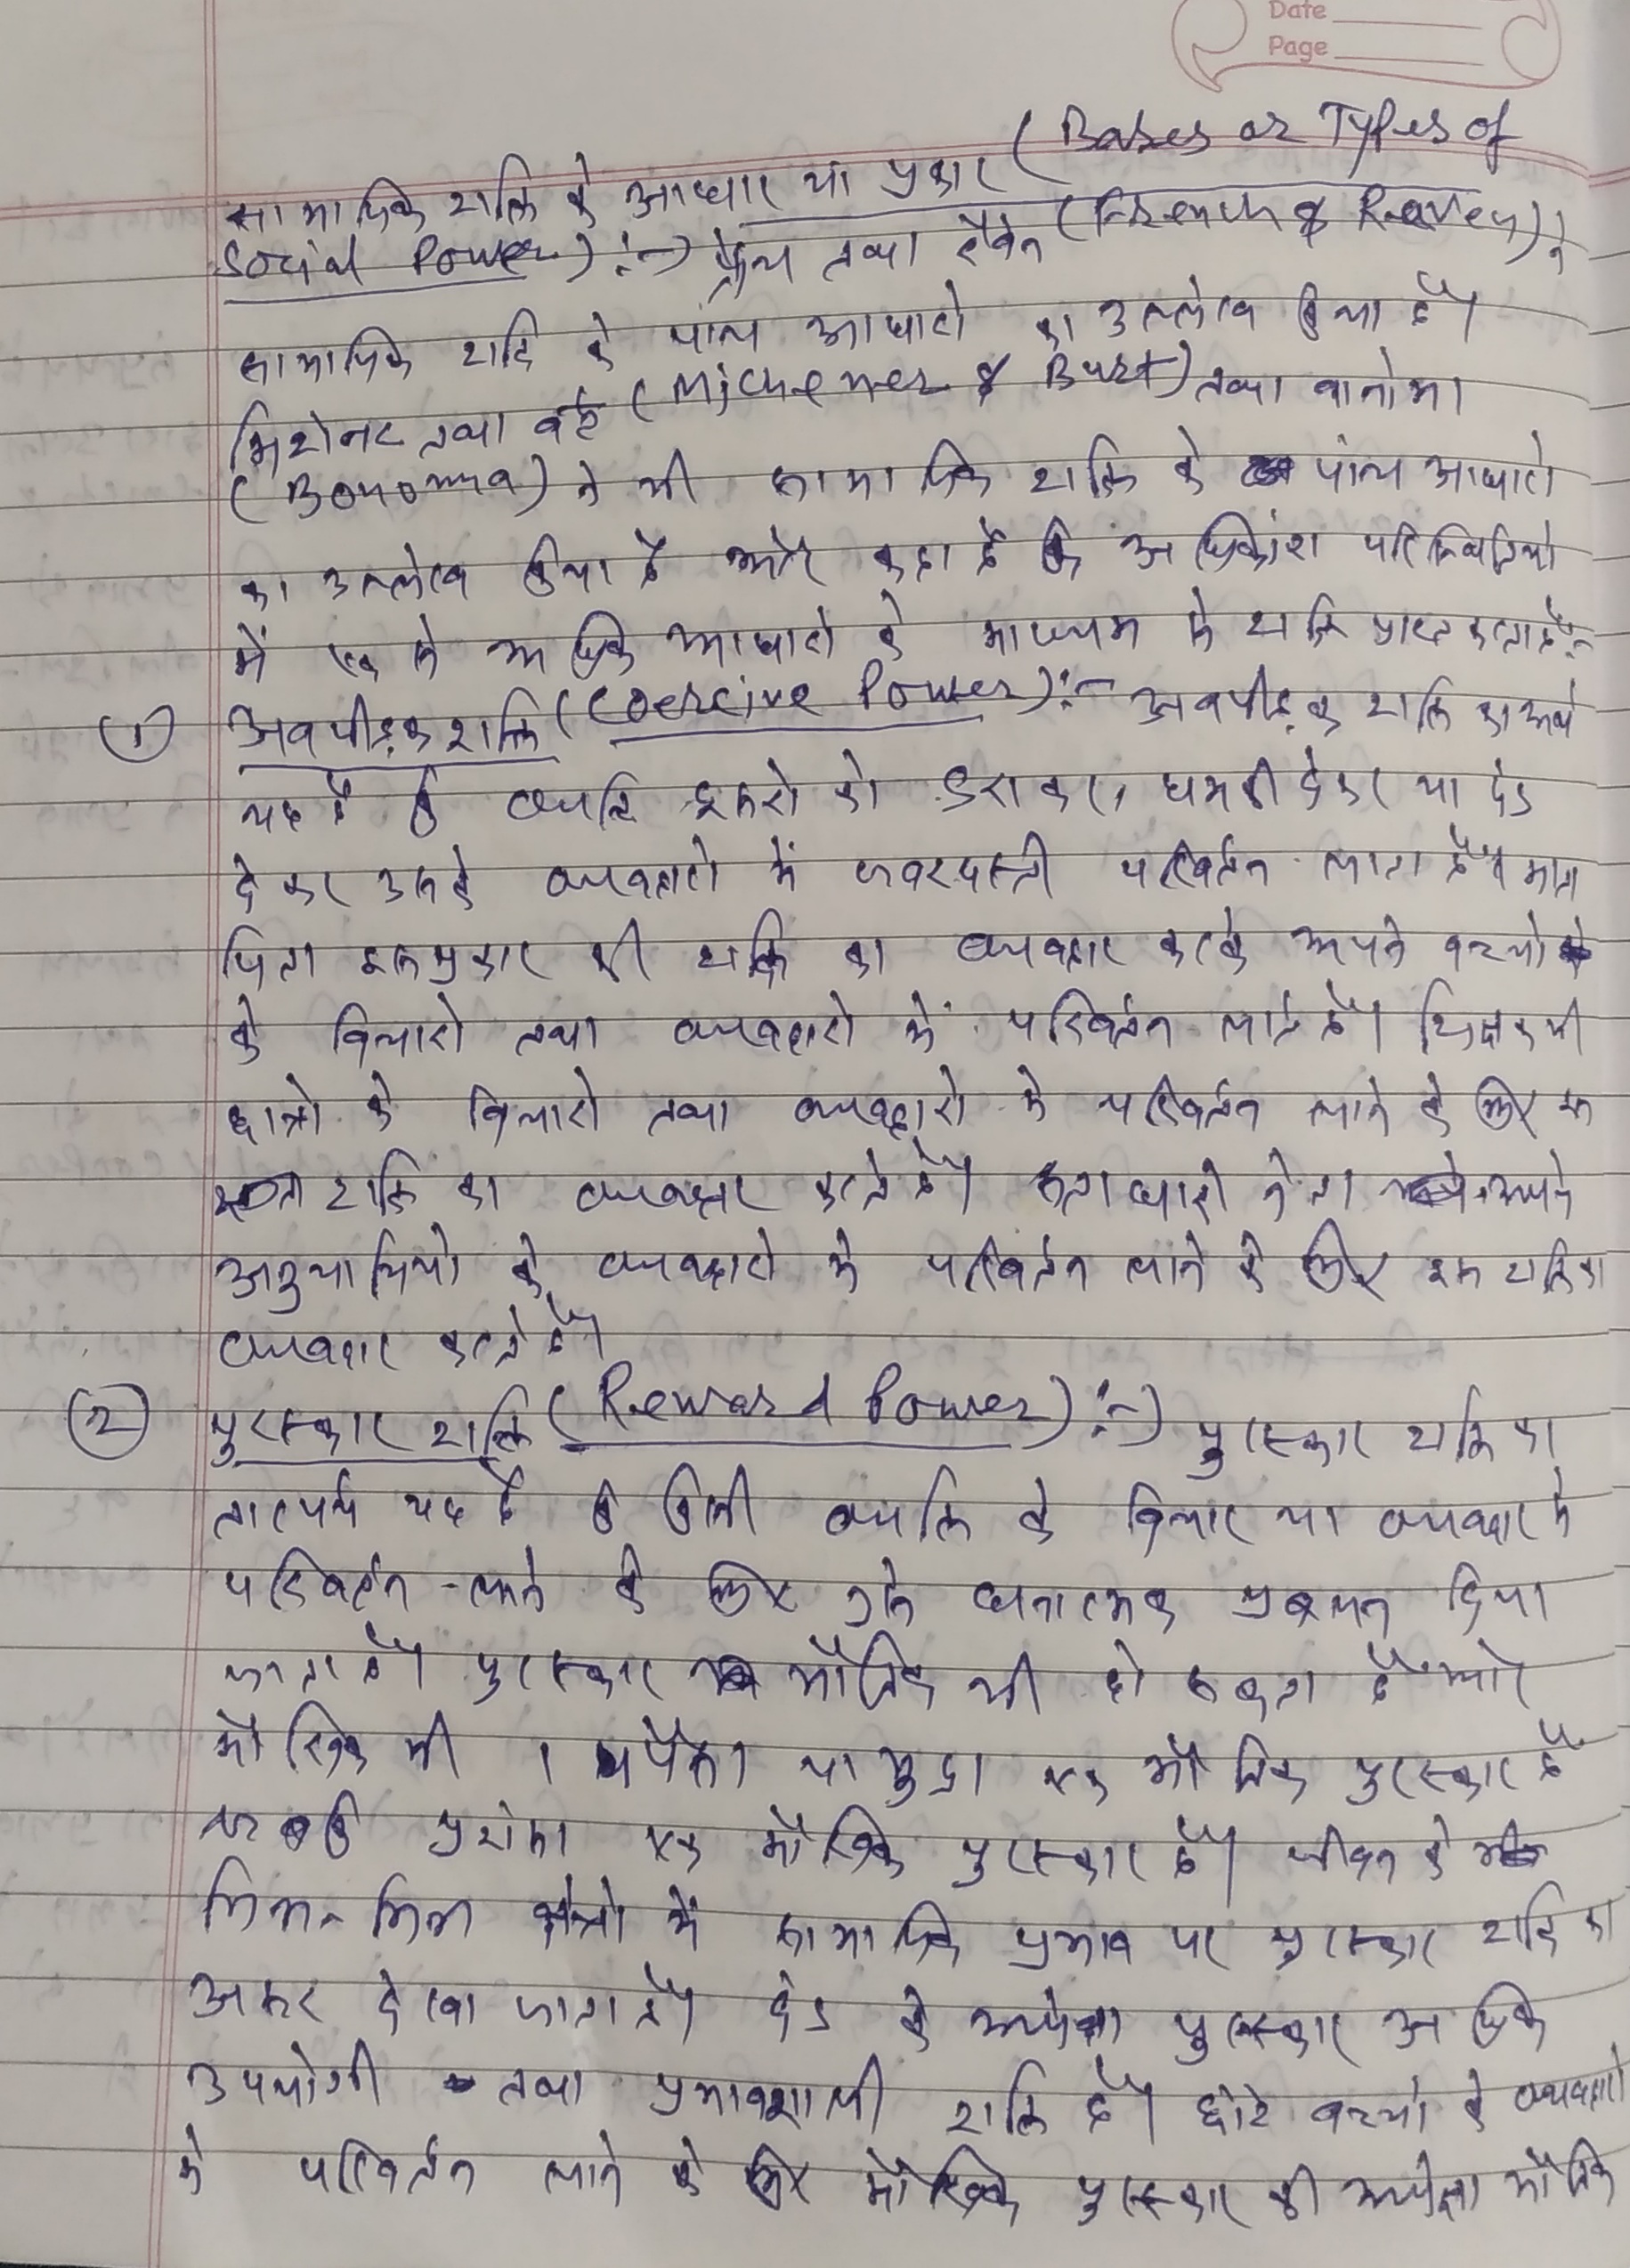 Date
Page
(Bases or Types of
सामाजिक शक्ति के आधार या प्रकार
Social Power) :-) फ्रेंच तथा रैवेन (French & Raven) ने
सामाजिक शक्ति के पांच आधारों का उल्लेख किया है।
मिशेनर तथा बर्ट (Michener & Burt) तथा बोनोमा
(Bonoma) ने भी सामाजिक शक्ति के पांच आधारों
का उल्लेख किया है और कहा है कि अधिकांश परिस्थितियों
में एक से अधिक आधारों के माध्यम से शक्ति प्राप्त करता है:-
(1) अवपीड़क शक्ति (Coercive Power):- अवपीड़क शक्ति का अर्थ
यह है कि व्यक्ति दूसरों को डराकर, धमकी देकर या दंड
देकर उसके व्यवहारों में जबरदस्ती परिवर्तन लाता है। माता
पिता इस प्रकार की शक्ति का व्यवहार करके अपने बच्चों
के विचारों तथा व्यवहारों में परिवर्तन लाते हैं। शिक्षक भी
छात्रों के विचारों तथा व्यवहारों में परिवर्तन लाने के लिए
शक्ति का व्यवहार करते हैं। सत्ताधारी नेता अपने
अनुयायियों के व्यवहारों में परिवर्तन लाने के लिए इस शक्ति का
व्यवहार करते हैं।
(2) पुरस्कार शक्ति (Reward Power) :-) पुरस्कार शक्ति का
तात्पर्य यह है कि किसी व्यक्ति के विचार या व्यवहार में
परिवर्तन लाने के लिए उसे धनात्मक प्रबलन दिया
जाता है। पुरस्कार भौतिक भी हो सकता है और
मौखिक भी। पैसा या मुद्रा एक भौतिक पुरस्कार है
जबकि प्रशंसा एक मौखिक पुरस्कार है। जीवन के
भिन्न-भिन्न क्षेत्रों में सामाजिक प्रभाव पर पुरस्कार शक्ति का
असर देखा जाता है। दंड के अपेक्षा पुरस्कार अधिक
उपयोगी तथा प्रभावशाली शक्ति है। छोटे बच्चों के व्यवहारों
में परिवर्तन लाने के लिए मौखिक पुरस्कार की अपेक्षा भौतिक